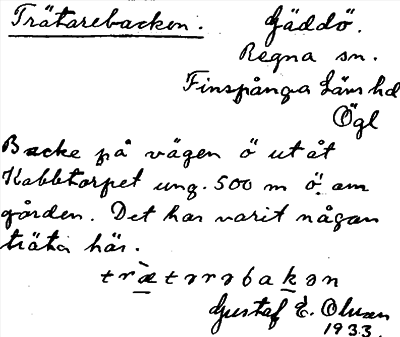 Trätarebacken. Gäddö.
Regna sn.
Finspånga Läns hd
Ögl
Backe på vägen ö ut åt
Kabbtorpet ung. 500 m ö. om
gården. Det har varit någon
träta här.
trætarəbakən
Gustaf E. Olsson
1933.